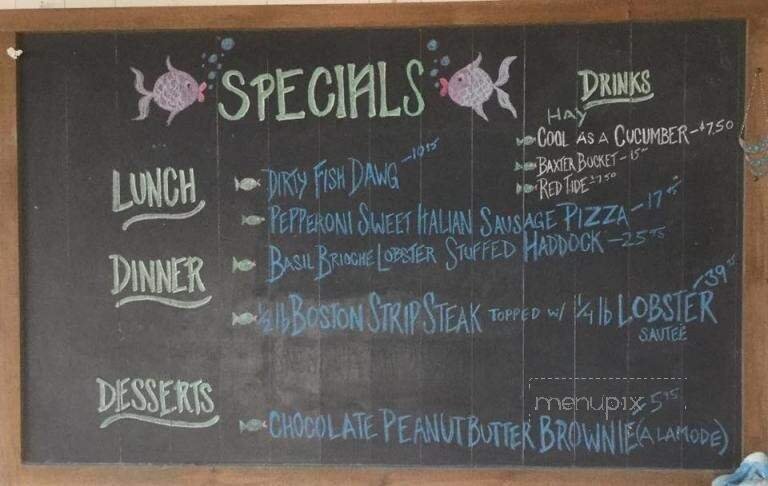 SPECIALS
DRINKS
HAY
COOL AS A CUCUMBER - $7.50
BAXTER BUCKET - 15
RED TIDE - 7.50
LUNCH
DIRTY FISH DAWG - 10.95
PEPPERONI SWEET ITALIAN SAUSAGE PIZZA - 17.95
DINNER
BASIL BRIOCHE LOBSTER STUFFED HADDOCK - 25.95
1/2 lb BOSTON STRIP STEAK TOPPED W/ 1/4 lb LOBSTER - 39.95
SAUTEÉ
DESSERTS
CHOCOLATE PEANUT BUTTER BROWNIE (A LA MODE) 5.95
menupix